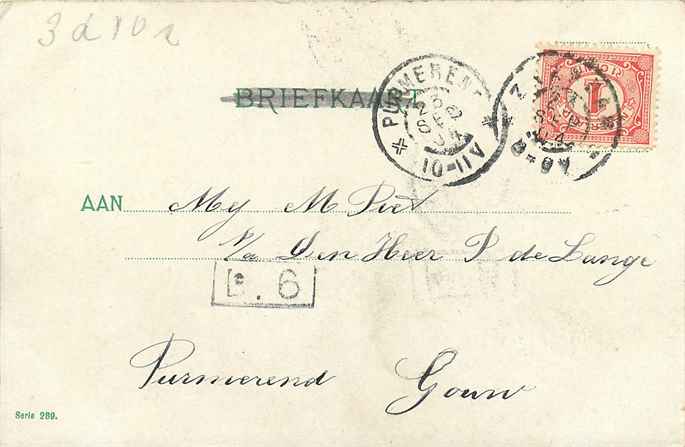 3 d 10
BRIEFKAART
PURMEREND
26
SEP
04
10-11V
1
AAN Mej M Piet
p/a Den Heer P de Lange
B. 6
Purmerend Gouw
Serie 289.